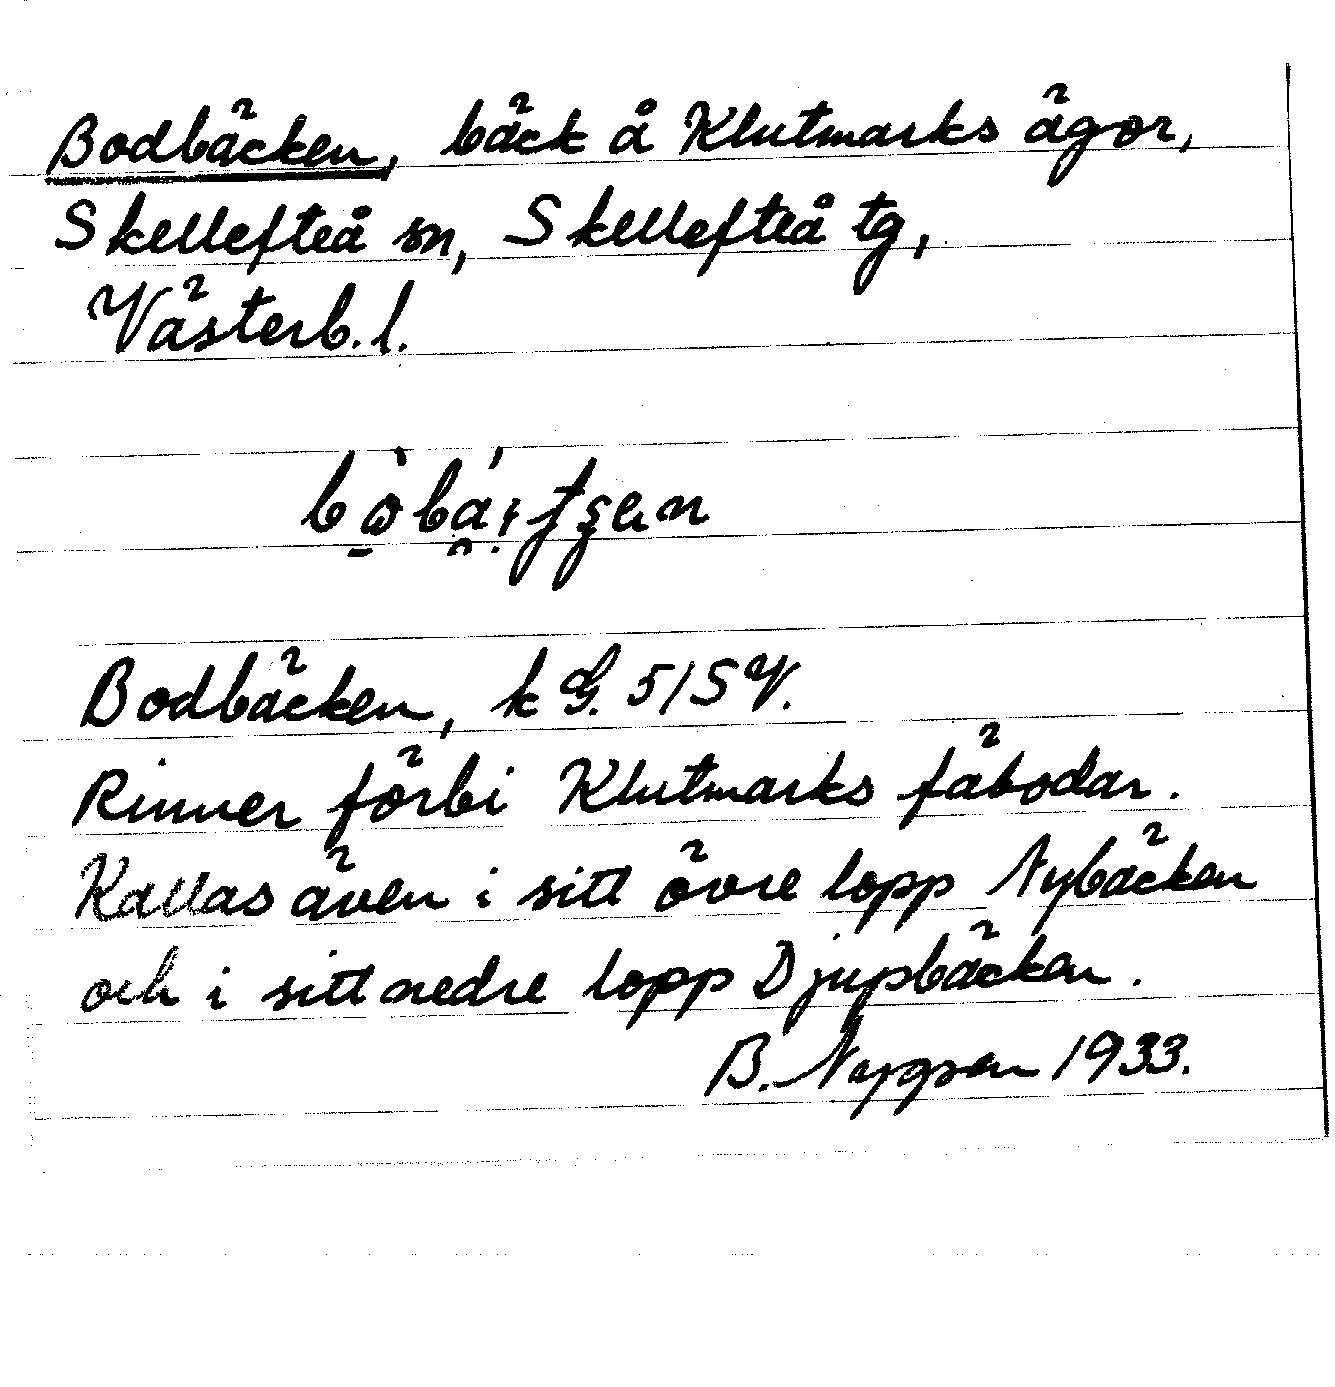 Bodbäcken, bäck å Klutmarks ägor,
Skellefteå sn, Skellefteå tg,
Västerb. l.
Bodbäcken, k G. 51 SV.
Rinner förbi Klutmarks fäbodar.
Kallas även i sitt övre lopp Nybäcken
och i sitt nedre lopp Djupbäcken.
B. 1933.